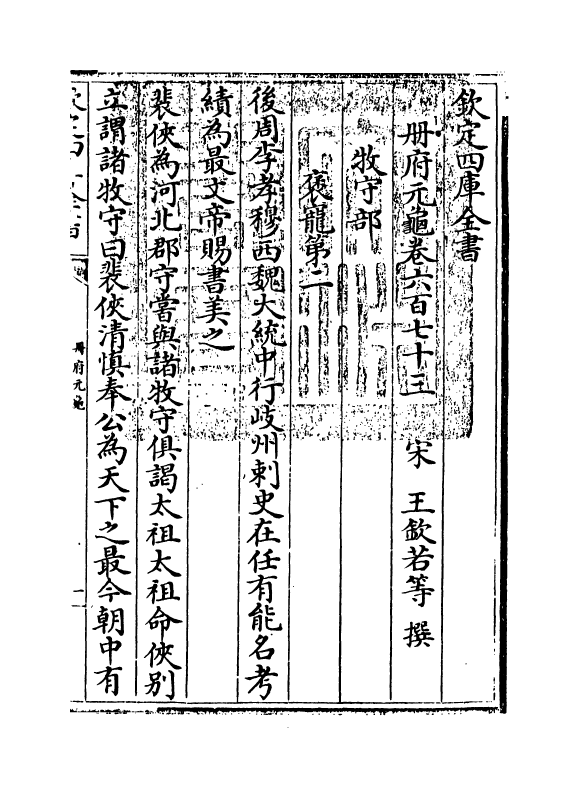 欽定四庫全書
冊府元龜卷六百七十三 宋 王欽若等 撰
牧守部
褒寵第二
後周李孝穆西魏大統中行岐州刺史在任有能名考
績為最文帝賜書美之
裴俠為河北郡守嘗與諸牧守俱謁太祖太祖命俠別
立謂諸牧守曰裴俠清慎奉公為天下之最今朝中有
冊府元龜